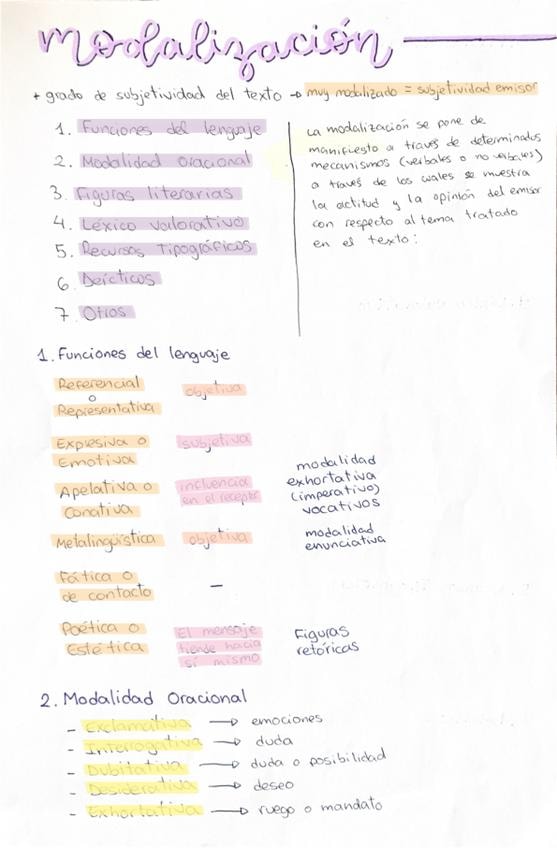 modalización
+ grado de subjetividad del texto → muy modalizado = subjetividad emisor
1. Funciones del lenguaje
2. Modalidad Oracional
3. Figuras literarias
4. Léxico valorativo
5. Recursos Tipográficos
6. Deícticos
7. Otros
La modalización se pone de
manifiesto a través de determinados
mecanismos (verbales o no verbales)
a través de los cuales se muestra
la actitud y la opinión del emisor
con respecto al tema tratado
en el texto:
1. Funciones del lenguaje
Referencial
o
Representativa
objetiva
Expresiva o
Emotiva
subjetiva
Apelativa o
Conativa
influencia
en el receptor
modalidad
exhortativa
(imperativo)
vocativos
Metalingüística
objetiva
modalidad
enunciativa
Fática o
de contacto
—
Poética o
Estética
El mensaje
tiende hacia
sí mismo
Figuras
retóricas
2. Modalidad Oracional
- Exclamativa → emociones
- Interrogativa → duda
- Dubitativa → duda o posibilidad
- Desiderativa → deseo
- Exhortativa → ruego o mandato